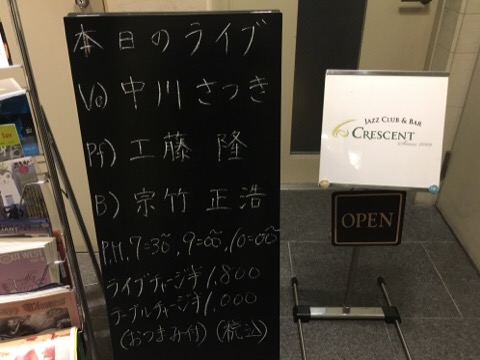 本日のライブ
Vo) 中川さつき
Pf) 工藤 隆
B) 宗竹 正浩
P.M. 7=30, 9=00, 10=00
ライブチャージ¥1,800
テーブルチャージ¥1,000
(おつまみ付) (税込)
JAZZ CLUB & BAR
CRESCENT
OPEN